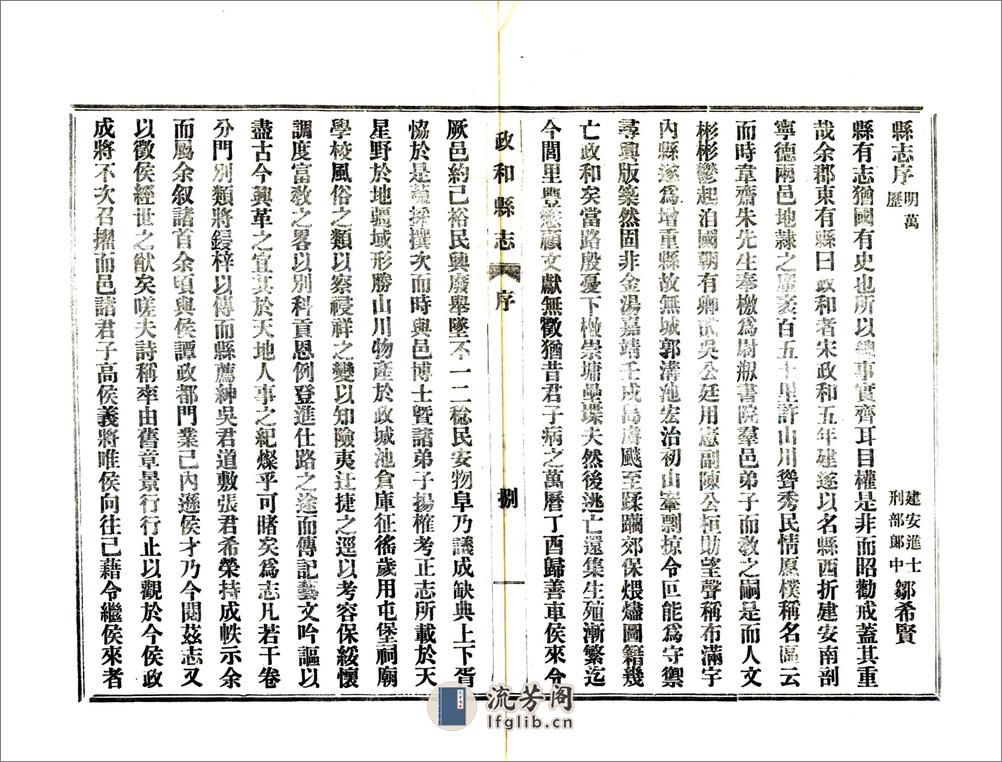 縣志序明萬曆
建安進士刑部郎中鄒希賢
縣有志猶國有史也所以總事實齊耳目權是非而昭勸戒蓋其重
哉余郡東有縣曰政和者宋政和五年建遂以名縣西折建安南剖
寧德兩邑地隷之廣袤百五十里許山川聳秀民情原樸稱名區云
而時韋齋朱先生奉檄爲尉剏書院羣邑弟子而敎之嗣是而人文
彬彬鬱起洎國朝有卿貳吳公廷用憲副陳公桓勛望聲稱布滿宇
內縣遂爲增重縣故無城郭溝池宏治初山寇剽掠令叵能爲守禦
尋興版築然固非金湯嘉靖壬戌島腐颷至蹂躪郊保煨燼圖籍幾
亡政和矣當路殷憂下檄崇墉壘堞夫然後逃亡還集生殖漸繁迄
今閭里豐愍顧文獻無徵猶昔君子病之萬曆丁酉歸善車侯來令
政和縣志
序
捌
厥邑約己裕民興廢舉墜不一二稔民安物阜乃議成缺典上下胥
恊於是蒐採撰次而時與邑博士曁諸弟子揚榷考正志所載於天
星野於地疆域形勝山川物產於政城池倉庫征徭歲用屯堡祠廟
學校風俗之類以察祲祥之變以知險夷迂捷之逕以考容保綏懷
調度富敎之畧以別科貢恩例登進仕路之途而傳記藝文吟謳以
盡古今興革之宜其於天地人事之紀燦乎可睹矣爲志凡若干卷
分門別類將鋟梓以傳而縣薦紳吳君道敷張君希榮持成帙示余
而屬余叙諸首余頃與侯譚政都門業已內遜侯才乃今閱茲志又
以徵侯經世之猷矣嗟夫詩稱率由舊章景行行止以觀於今侯政
成將不次召擢而邑諸君子高侯義將唯侯向往已藉令繼侯來者
流芳阁
lfglib.cn